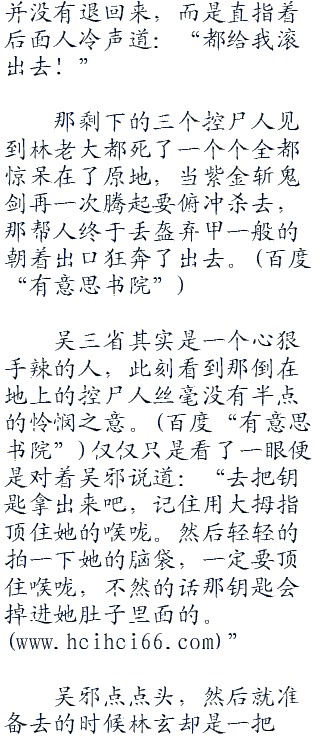 并没有退回来，而是直指着
后面人冷声道：“都给我滚
出去！”
那剩下的三个控尸人见
到林老大都死了一个个全都
惊呆在了原地，当紫金斩鬼
剑再一次腾起要俯冲杀去，
那帮人终于丢盔弃甲一般的
朝着出口狂奔了出去。(百度
“有意思书院”)
吴三省其实是一个心狠
手辣的人，此刻看到那倒在
地上的控尸人丝毫没有半点
的怜悯之意。(百度“有意思
书院”)仅仅只是看了一眼便
是对着吴邪说道：“去把钥
匙拿出来吧，记住用大拇指
顶住她的喉咙。然后轻轻的
拍一下她的脑袋，一定要顶
住喉咙，不然的话那钥匙会
掉进她肚子里面的。
(www.hcihci66.com)”
吴邪点点头，然后就准
备去的时候林玄却是一把